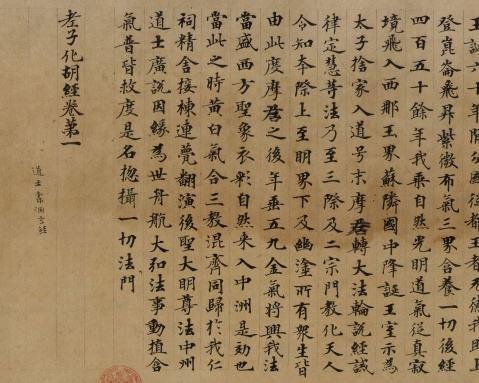 王誕六十年間分國從都王者无德我即上
登崑崙飛昇紫微布氣三界含養一切後經
四百五十餘年我乘自然光明道氣從真寂
境飛入西那玉界蘇隣國中降誕王室示為
太子捨家入道号末摩尼轉大法輪說經誡
律定慧等法乃至三際及二宗門教化天人
令知本際上至明界下及幽塗所有衆生皆
由此度摩尼之後年垂五九金氣將興我法
當盛西方聖象衣彩自然來入中洲是効也
當此之時黃白氣合三教混齊同歸於我仁
祠精舍接棟連甍翻演後聖大明尊法中州
道士廣說因緣為世舟航大弘法事動植含
氣普皆救度是名揔攝一切法門
老子化胡經卷第一
道士索洞玄經